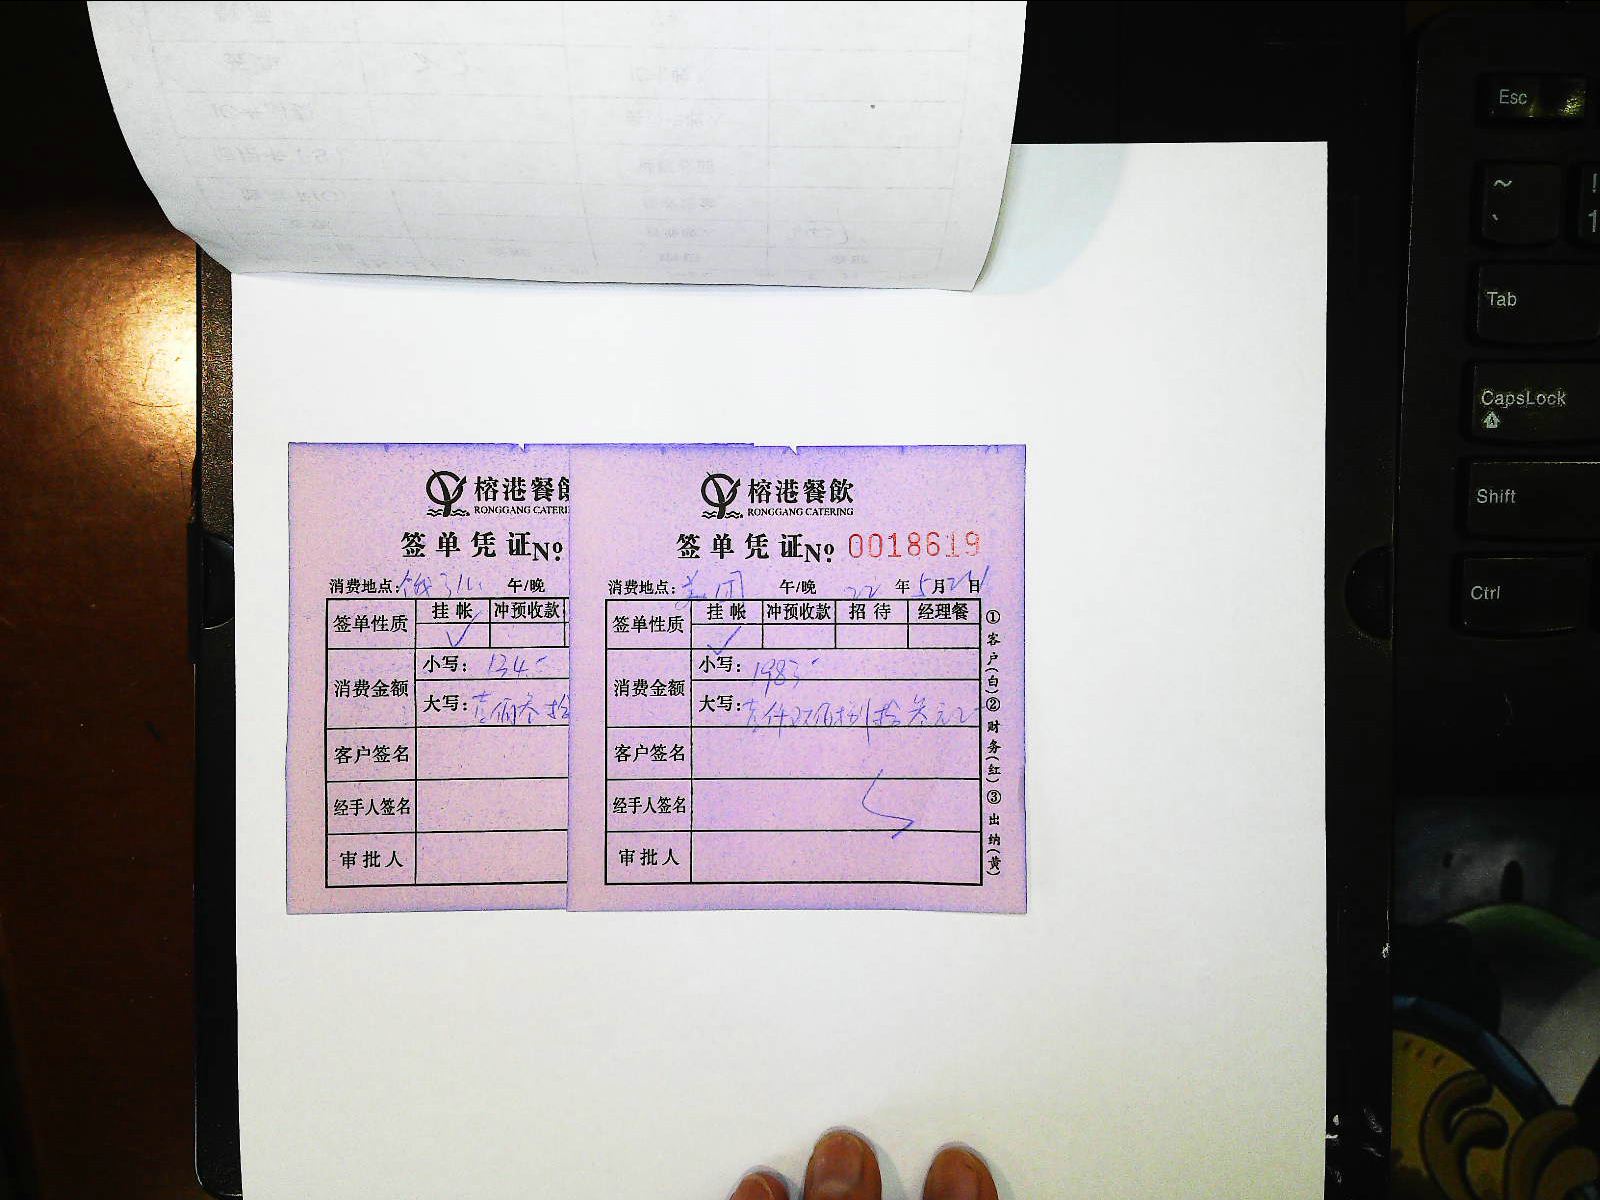 榕港餐飲
RONGGANG CATERI
签单凭证 №
消费地点: 午/晚
签单性质 挂帐 冲预收款
消费金额 小写: 134.
大写: 壹佰叁拾
客户签名
经手人签名
审批人
榕港餐飲
RONGGANG CATERING
签单凭证 № 0018619
消费地点: 美团 午/晚 22 年 5 月 日
签单性质 挂帐 冲预收款 招待 经理餐
消费金额 小写: 1983
大写: 壹仟玖佰捌拾叁元
客户签名
经手人签名
审批人
①客户(白)②财务(红)③出纳(黄)
Esc
~
!
1
Tab
CapsLock
Shift
Ctrl